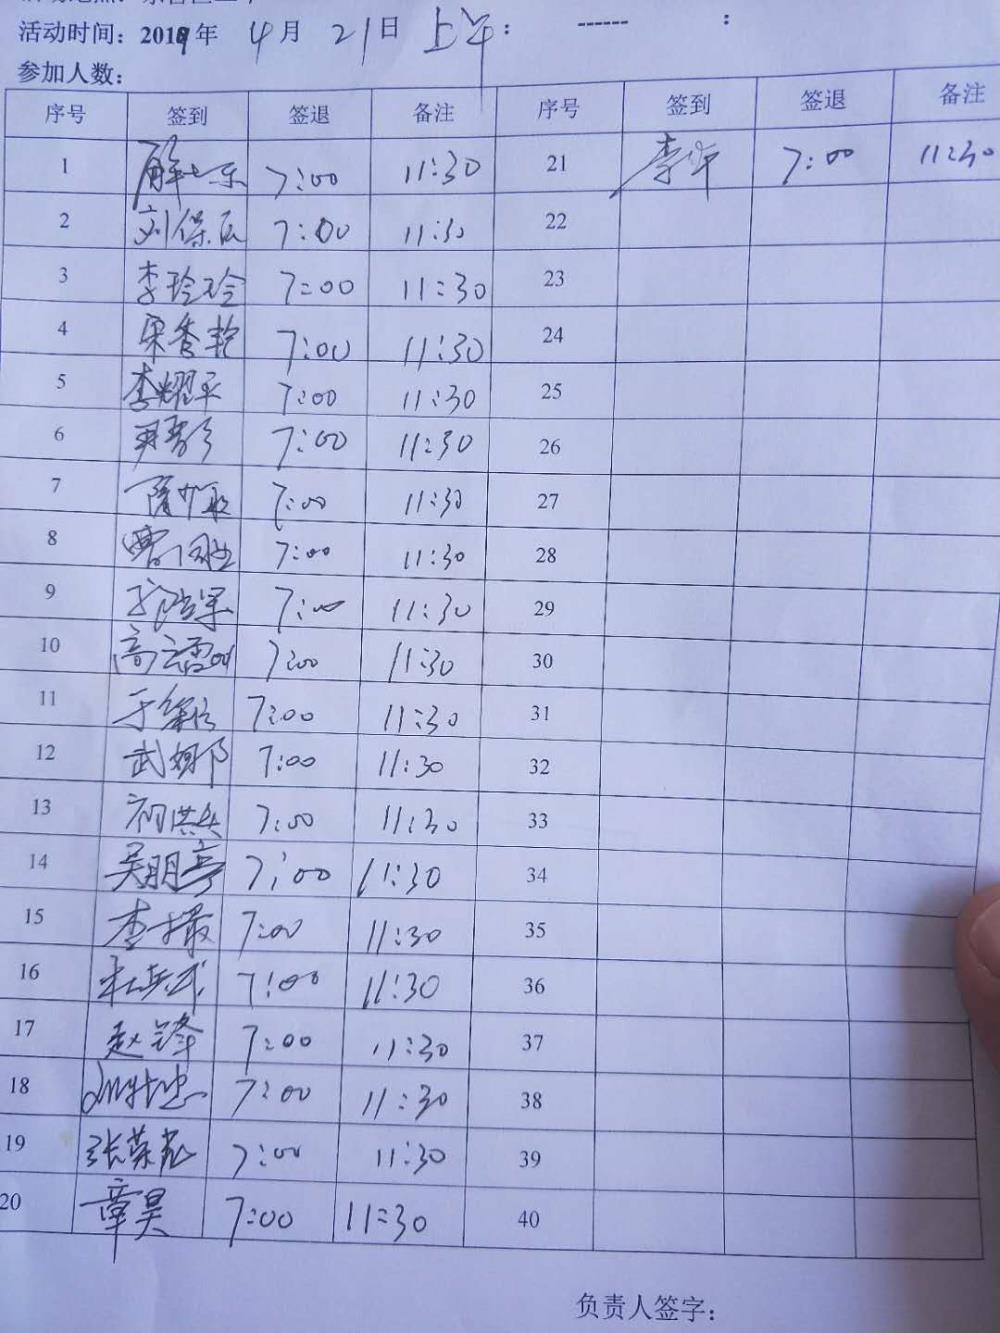 活动时间: 2019年 4月 21日 上午: ------ :
参加人数:
序号 签到 签退 备注 序号 签到 签退 备注
1 7:00 11:30 21 李华 7:00 11:30
2 刘保 7:00 11:30 22
3 李玲玲 7:00 11:30 23
4 宋秀艳 7:00 11:30 24
5 李耀平 7:00 11:30 25
6 7:00 11:30 26
7 7:00 11:30 27
8 曹 7:00 11:30 28
9 7:00 11:30 29
10 高 7:00 11:30 30
11 于 7:00 11:30 31
12 武娜 7:00 11:30 32
13 初洪 7:00 11:30 33
14 吴明亮 7:00 11:30 34
15 李 7:00 11:30 35
16 杜兵武 7:00 11:30 36
17 赵锋 7:00 11:30 37
18 7:00 11:30 38
19 张荣 7:00 11:30 39
20 章昊 7:00 11:30 40
负责人签字: